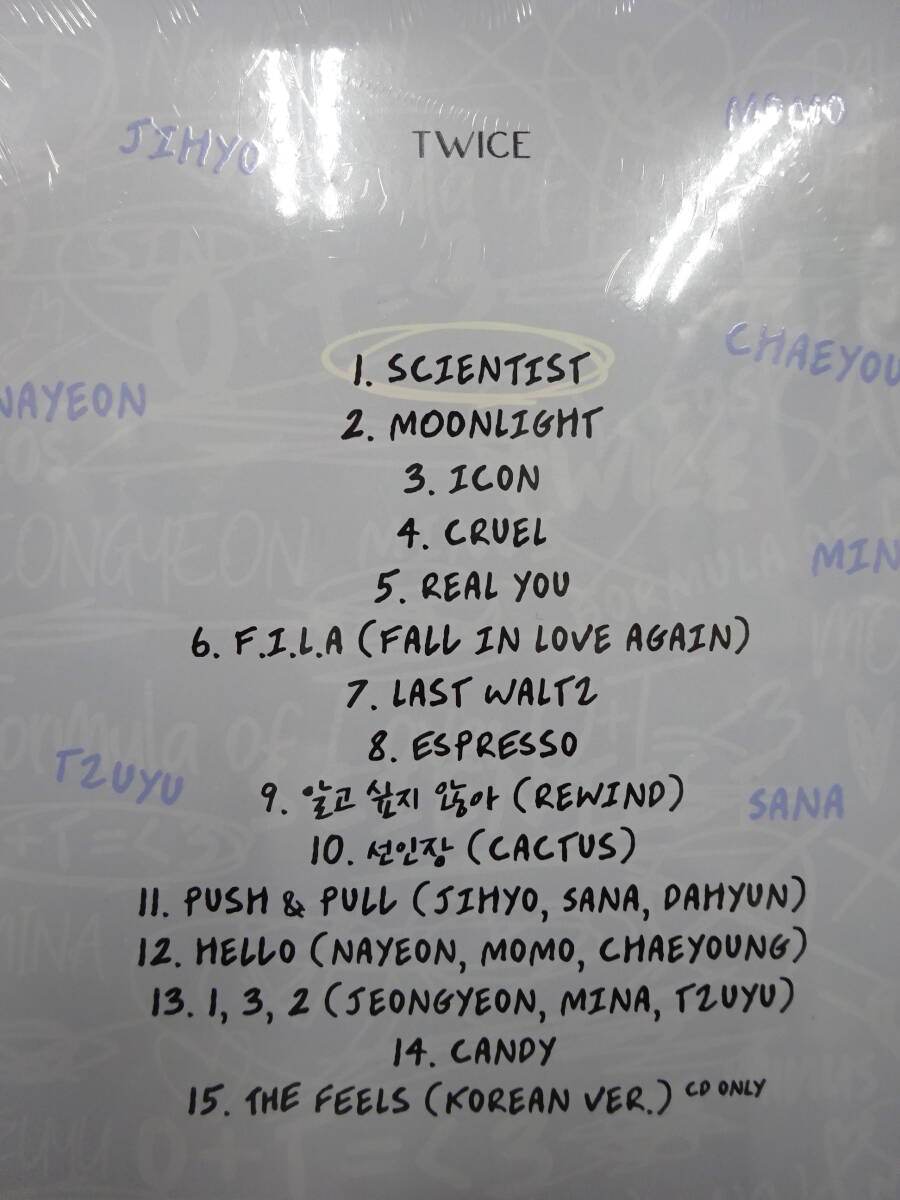 JIHYO
TWICE
MOMO
1. SCIENTIST
CHAEYOU
NAYEON
2. MOONLIGHT
3. ICON
4. CRUEL
MIN
5. REAL YOU
6. F.I.L.A (FALL IN LOVE AGAIN)
7. LAST WALTZ
8. ESPRESSO
TZUYU
9. 알고 싶지 않아 (REWIND)
SANA
10. 선인장 (CACTUS)
11. PUSH & PULL (JIHYO, SANA, DAHYUN)
12. HELLO (NAYEON, MOMO, CHAEYOUNG)
13. 1, 3, 2 (JEONGYEON, MINA, TZUYU)
14. CANDY
15. THE FEELS (KOREAN VER.) CD ONLY